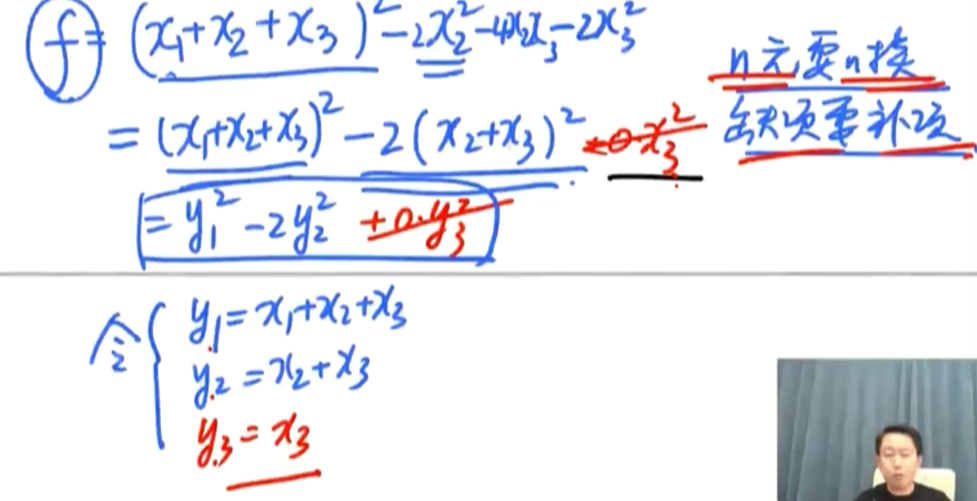 f = (x₁+x₂+x₃)² -2x₂²-4x₂x₃-2x₃²
= (x₁+x₂+x₃)² -2(x₂+x₃)² +0·x₃²
= y₁² -2y₂² +0·y₃²
n元要n换
缺项要补项
令 { y₁=x₁+x₂+x₃
y₂=x₂+x₃
y₃=x₃